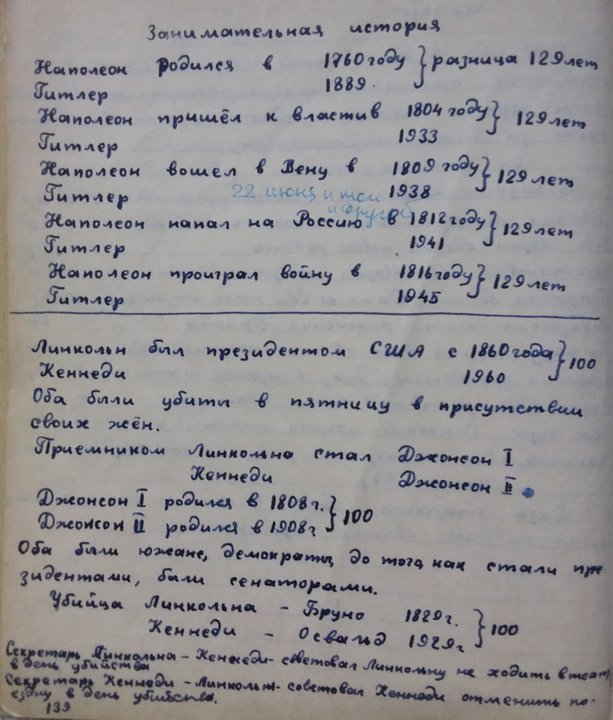 Занимательная история
Наполеон родился в 1760 году } разница 129 лет
Гитлер 1889.
Наполеон пришёл к власти в 1804 году } 129 лет
Гитлер 1933
Наполеон вошел в Вену в 1809 году } 129 лет
Гитлер 22 июня и тот и другой 1938
Наполеон напал на Россию в 1812 году } 129 лет
Гитлер 1941
Наполеон проиграл войну в 1816 году } 129 лет
Гитлер 1945
Линкольн был президентом США с 1860 года } 100
Кеннеди 1960
Оба были убиты в пятницу в присутствии
своих жён.
Приемником Линкольна стал Джонсон I
Кеннеди Джонсон II
Джонсон I родился в 1808 г. } 100
Джонсон II родился в 1908 г
Оба были южане, демократы, до того, как стали пре
зидентами, были сенаторами.
Убийца Линкольна – Бруно 1829 г. } 100
Кеннеди – Освальд 1929 г
Секретарь Линкольна – Кеннеди – советовал Линкольну не ходить в театр
в день убийства
Секретарь Кеннеди – Линкольн – советовал Кеннеди отменить по-
ездку в день убийства.
139